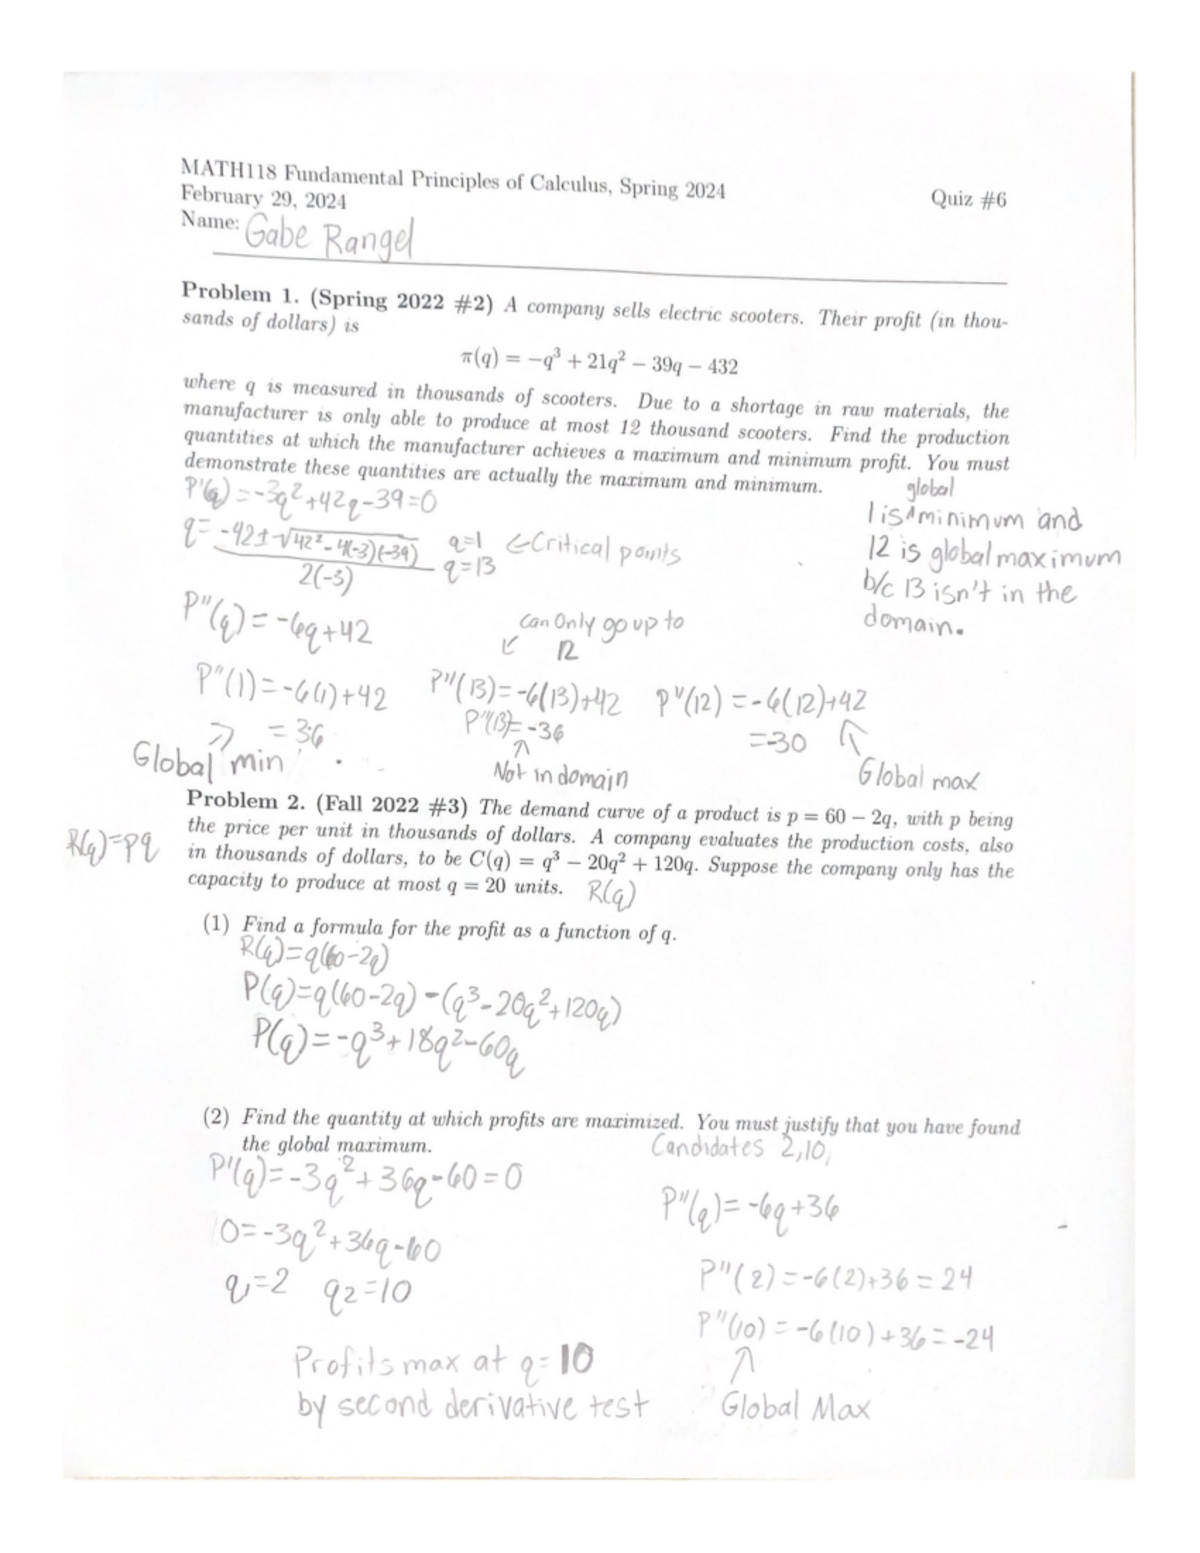 MATH118 Fundamental Principles of Calculus, Spring 2024
February 29, 2024 Quiz #6
Name: Gabe Rangel
Problem 1. (Spring 2022 #2) A company sells electric scooters. Their profit (in thou-
sands of dollars) is
π(q) = −q³ + 21q² − 39q − 432
where q is measured in thousands of scooters. Due to a shortage in raw materials, the
manufacturer is only able to produce at most 12 thousand scooters. Find the production
quantities at which the manufacturer achieves a maximum and minimum profit. You must
demonstrate these quantities are actually the maximum and minimum.
P'(q) = -3q²+42q-39=0
q= -42±√42²-4(-3)(-39) / 2(-3)
q=1
q=13
←Critical points
global
1 is ^ minimum and
12 is global maximum
b/c 13 isn't in the
domain.
P"(q) = -6q+42
can only go up to
↙ 12
P"(1) = -6(1)+42
= 36
Global min
P"(13)=-6(13)+42
P"(13)=-36
↑
Not in domain
P"(12) = -6(12)+42
=-30
Global max
Problem 2. (Fall 2022 #3) The demand curve of a product is p = 60 − 2q, with p being
the price per unit in thousands of dollars. A company evaluates the production costs, also
in thousands of dollars, to be C(q) = q³ − 20q² + 120q. Suppose the company only has the
capacity to produce at most q = 20 units. R(q)
R(q)=pq
(1) Find a formula for the profit as a function of q.
R(q)=q(60-2q)
P(q)=q(60-2q) -(q³-20q²+120q)
P(q)=-q³+18q²-60q
(2) Find the quantity at which profits are maximized. You must justify that you have found
the global maximum.
Candidates 2,10,
P'(q)=-3q²+36q-60=0
0=-3q²+36q-60
q₁=2 q2=10
P"(q)= -6q+36
P"(2)=-6(2)+36 = 24
P"(10) = -6(10)+36=-24
↑
Global Max
Profits max at q=10
by second derivative test